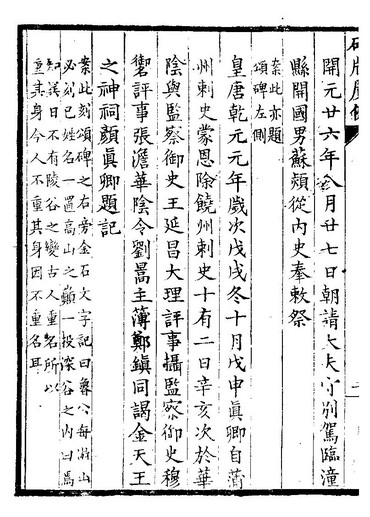 開元廿六年八月廿七日朝請大夫守別駕臨潼
縣開國男蘇頲從內史奉敕祭
案此亦題
頌碑左側
皇唐乾元元年歲次戊戌冬十月戊申眞卿自蒲
州刺史蒙恩除饒州刺史十有二日辛亥次於華
陰與監察御史王延昌大理評事攝監察御史穆
寧評事張澹華陰令劉暠主簿鄭鎭同謁金天王
之神祠顏眞卿題記
案此刻頌碑之右旁金石文字記曰魯公每游山
必刻己姓名一置高山之巔一投深谷之内曰焉
知異日不有陵谷之變古人重名所以
重其身今人不重其身因不重名耳